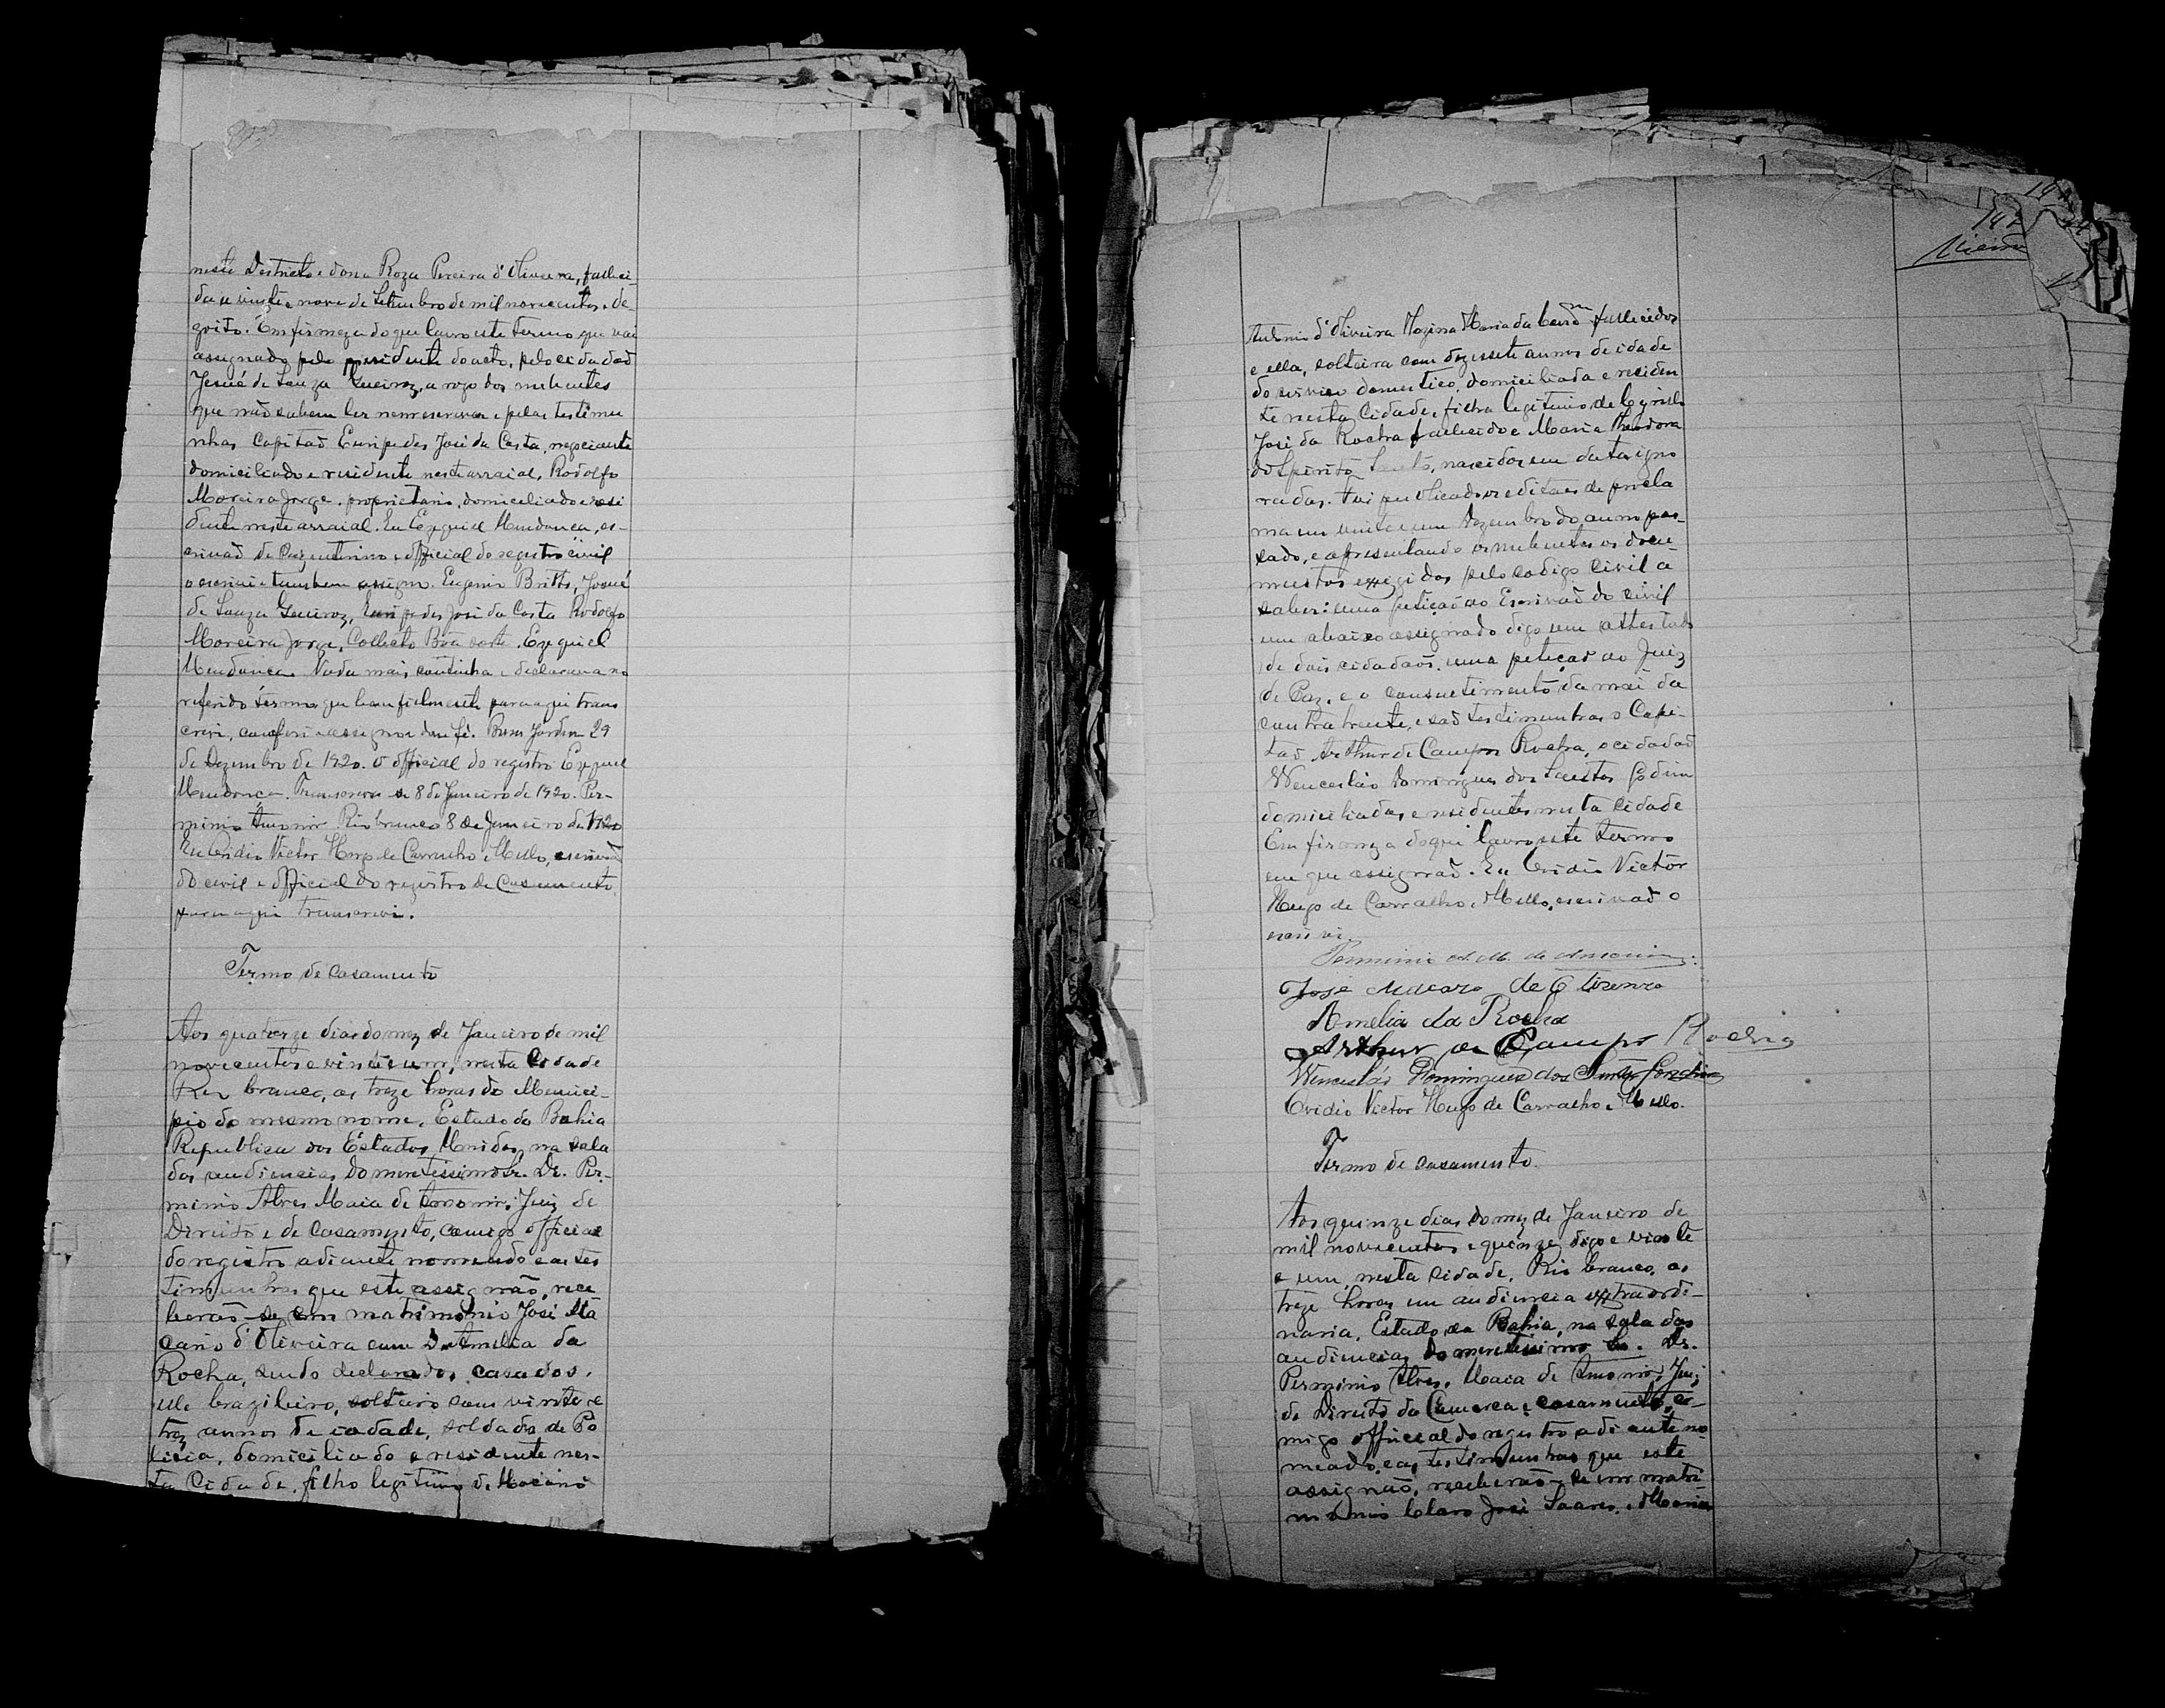 neste Districto e dona Roza Pereira d'Oliveira, falleci-
da a vinte e nove de Setembro de mil novecentos e de-
zoito. Em firmeza do que lavro este termo que vai
assignado pelo presidente do acto, pelo cidadaõ
Josué de Souza Queiroz, a rogo dos nubentes
que não sabem ler nem escrever e pelas testimu
nhas Capitaõ Euripedes José da Costa, negociante
domiciliado e residente neste arraial, Rodolfo
Moreira Jorge, proprietario, domiciliado e resi
dente neste arraial. Eu Ezequiel Mendonça, es-
crivaõ de official do registro civil
o escrivi e tambem assigno. Eugenio Britto, Josué
de Souza Queiroz, Euripedes José da Costa Rodolfo
Moreira Jorge, Colleto Bôa sorte. Ezequiel
Mendonça. Nada mais continha e declarava no
referido termo que bem fielmente para aqui trans
crivi, conferi e assigno dou fé. Bom Jardim 29
de Dezembro de 1920. O official do registro Ezequiel
Mendonça. Transcreva-se 8 de Janeiro de 1920. Per-
minio Amorim. Rio branco 8 de Janeiro de 1920
Eu Ovidio Victor Hugo de Carvalho e Mello, escrivaõ
do civil e official do registro de Casamento,
para aqui transcrevi.
Termo de casamento
Aos quatorze dias do mez de Janeiro de mil
novecentos e vinte e um, nesta Cidade
Rio branco, as treze horas do Munici-
pio do mesmo nome, Estado da Bahia
Republica dos Estados Unidos, na sala
das audiencias do meretissimo Sr. Dr. Per-
minio Alves Maia de Amorim, Juiz de
Direito e de Casamento, comigo official
do registro adiante nomeado e as tes
timunhas que este assignão, rece
berão-se em matrimonio José Ma
cario d'Oliveira com D. Amelia da
Rocha, sendo declarados casados.
elle brazileiro, solteiro com vinte e
trez annos de idade, soldado de Po
licia, domiciliado e residente nes-
ta Cidade, filho legitimo de Macario
142
Vieira
Antonio d'Oliveira Maria da fallecidos
e ella, solteira com dezessete annos de idade
do serviço domestico, domiciliada e residen
te nesta Cidade, filha legitima de Cyrillo
José da Rocha fallecido e Maria Theodora
do Spirito Santo, nascidos em datas igno
radas. Foi publicado os editaes de procla
ma em vinte e um Dezembro do anno pas-
sado, e apresentando os nubentes os docu-
mentos exigidos pelo codigo civil a
saber: uma petição ao Escrivaõ do civil
um abaixo assignado digo um attestado
de dois cidadaõs, uma petiçaõ ao Juiz
de Paz, e o consentimento da mãi da
contrahente, e saõ testimunhas o Capi-
taõ Arthur de Campos Rocha, o cidadaõ
Wenceslão Domingues dos Santos Gondim
domiciliados e residentes nesta cidade
Em firmeza do que lavro este termo
em que assignaõ. Eu Ovidio Victor
Hugo de Carvalho e Mello, escrivaõ o
escrivi.
Perminio A. M. de Amorim
José Macaro de Oliveira
Amelia da Rocha
Arthur de Campos Rocha
Wencesláo Domingues dos Santos Gondim
Ovidio Victor Hugo de Carvalho e Mello.
Termo de casamento
Aos quinze dias do mez de Janeiro de
mil novecentos e quinze digo e vinte
e um, nesta cidade, Rio branco, as
treze horas em audiencia extraordi-
naria, Estado da Bahia, na sala das
audiencias do meretissimo Sr. Dr.
Perminio Alves Maia de Amorim, Juiz
de Direito da Comarca e casamento, co-
migo official do registro adiante no
meado, e as testimunhas que este
assignão, receberão-se em matri-
monio Claro José Soares e Maria